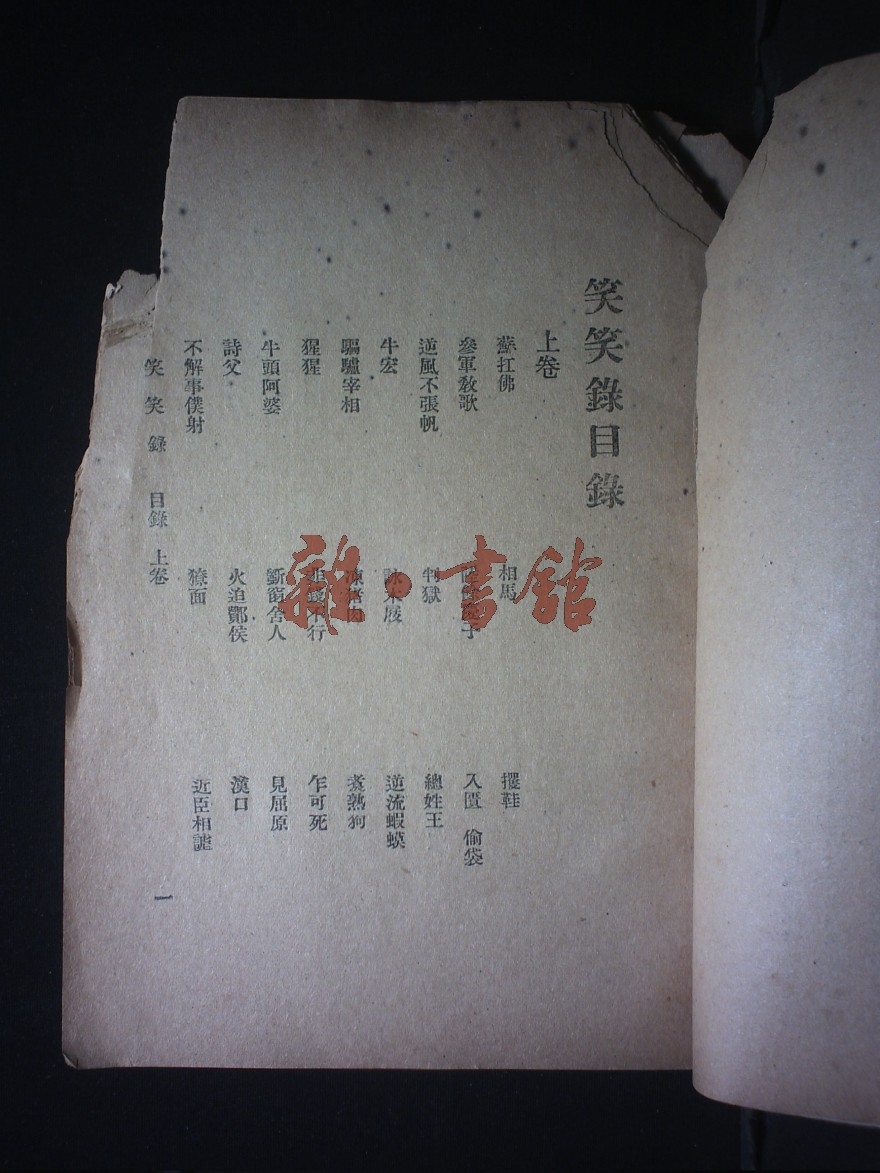 笑笑錄目錄
上卷
蘇扛佛 相馬 鞋
參軍教歌 子 入匱 偷袋
逆風不張帆 判獄 總姓王
牛宏 詠木屐 逆流蝦蟆
驅驢宰相 豬肉 煮熟狗
猩猩 不行 乍可死
牛頭阿婆 斲窗舍人 見屈原
詩父 火迫酇侯 漢口
不解事僕射 獠面 近臣相謔
笑笑錄 目錄 上卷 一
雜·書館